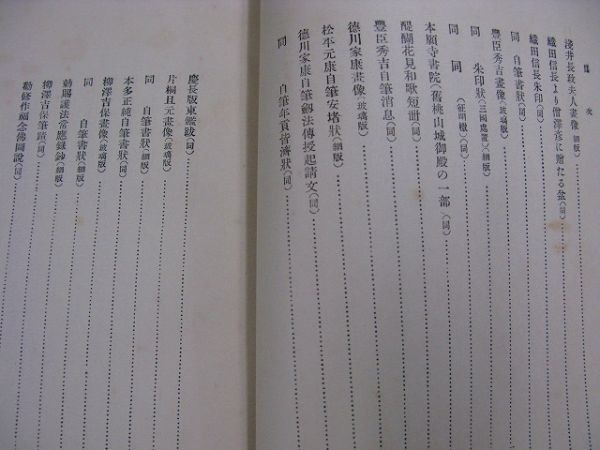 目次
淺井長政夫人畫像(網版)
織田信長より僧淨達に贈たる盆(同)
織田信長朱印(同)
同 自筆書狀(同)
豐臣秀吉畫像(玻璃版)
同 朱印狀(三國處置)(網版)
同 同 (征明檄)(同)
本願寺書院(舊桃山城御殿の一部)(同)
醍醐花見和歌短册(同)
豐臣秀吉自筆消息(同)
德川家康畫像(玻璃版)
松平元康自筆安堵狀(網版)
德川家康自筆劔法傳授起請文(同)
同 自筆年貢皆濟狀(同)
慶長版東鑑跋(同)
片桐且元畫像(玻璃版)
同 自筆書狀(網版)
本多正純自筆書狀(同)
柳澤吉保畫像(玻璃版)
同 自筆書狀(網版)
勅賜護法常應錄鈔(網版)
柳澤吉保筆蹟(同)
勸修作福念佛圖說(同)